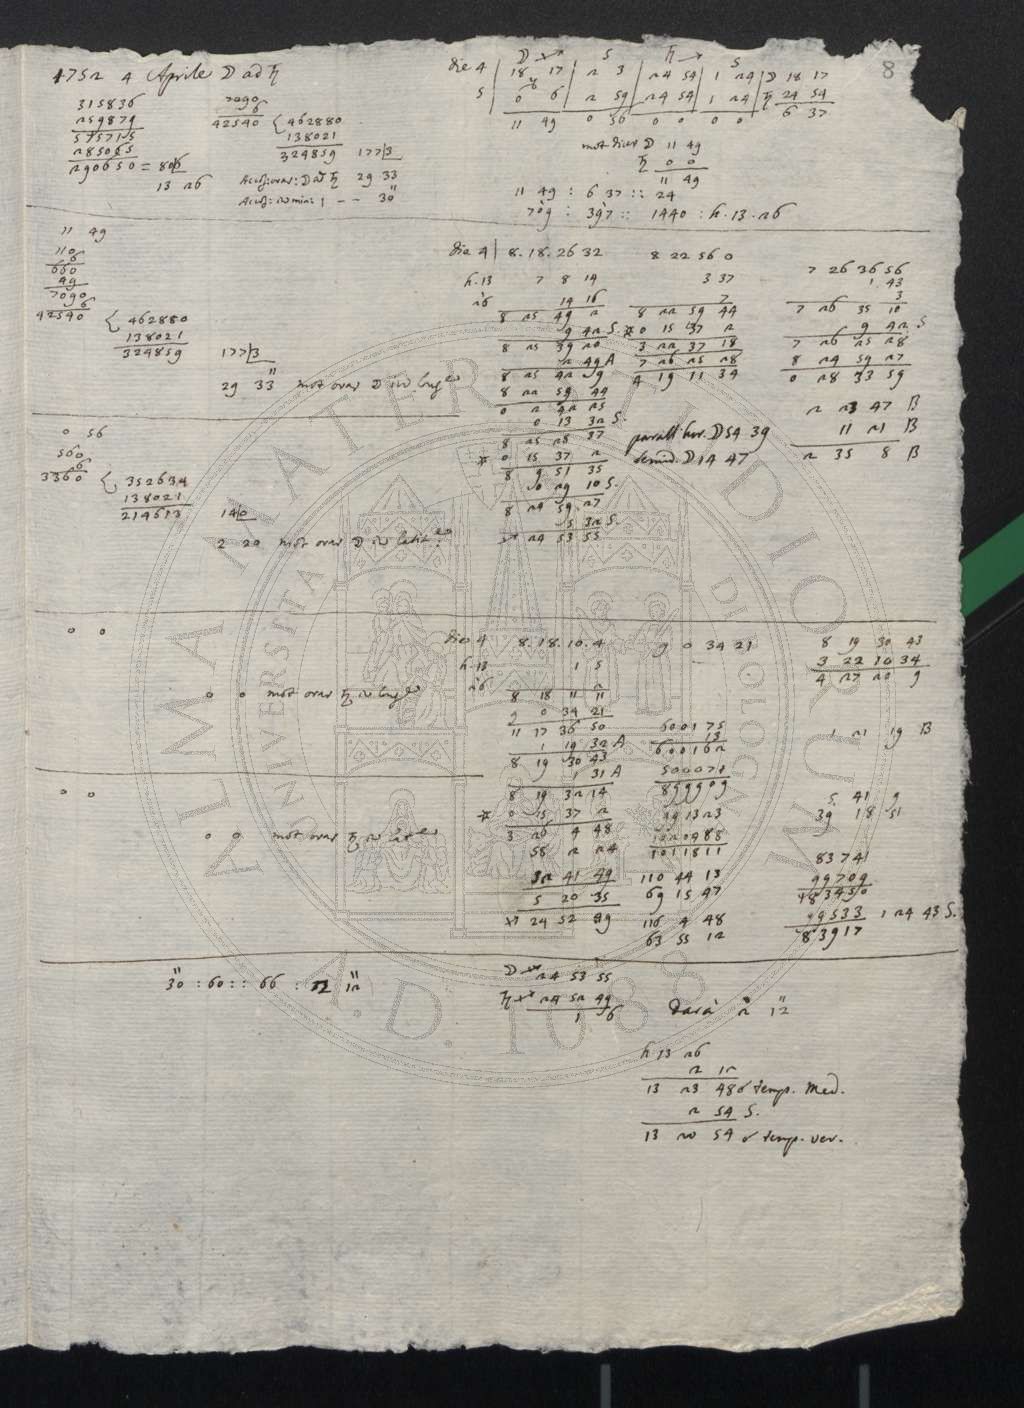 8
1752 4 Aprile ☽ ad ♄
315836
259879
575715
285065
290650 = 806
13 26
7090
6
42540 { 462880
138021
324859 177|3
Accs: orar: ☽ ad ♄ 29 33
Accs: in min: 1 -- 30"
☽ → S ♄ → S
die 4 | 18 17 | 2 3 | 24 54 | 1 24 | ☽ 18 17
5 | 0 6 | 2 59 | 24 54 | 1 24 | ♄ 24 54
11 49 0 56 0 0 0 0 6 37
mot diur ☽ 11 49
♄ 0 0
11 49
11 49 : 6 37 :: 24
709 : 397 :: 1440 : h. 13. 26
11 49
110
6
660
49
7090
6
42540 { 462880
138021
324859 177|3
29 33" mot orar ☽ in long
die 4 | 8. 18. 26 32 8 22 56 0
h. 13 7 8 14 3 37
26 14 16 7
8 25 49 2 8 22 59 44
9 42 S. * 0 15 37 2
8 25 39 20 3 22 37 18
2 49 A 7 26 25 28
8 25 42 9 4 19 11 34
8 22 59 44
0 2 42 25
0 13 32 S.
8 25 28 37
* 0 15 37 2
8 9 51 35
10 29 10 S.
8 24 59 27
5 32 S.
24 53 55
7 26 36 56
1 43
3
7 26 35 10
9 42 S
7 26 25 28
8 24 59 27
0 28 33 59
2 23 47 B
11 21 B
2 35 8 B
parall hor. ☽ 54 39
semid. ☽ 14 47
0 56
560
6
3360 { 352634
138021
214613 140
2 20 mot orar ☽ in latit:
0 0
0 0 mot orar ♄ in long
die 4 8. 18. 10. 4 9 0 34 21
h. 13 1 5
26 2
8 18 11 11
9 0 34 21
11 17 36 50
1 19 32 A
8 19 30 43
1 31 A
8 19 32 14
* 0 15 37 2
3 26 4 48
58 2 24
32 41 49
5 20 35
24 52 49
600175
13
600162
500071
899909
1020488
1011811
110 44 13
69 15 47
116 4 48
63 55 12
8 19 30 43
3 22 10 34
4 27 20 9
1 21 19 B
5 41 9
39 18 51
83741
99709
483450
99533 1 24 43 S.
83917
0 0
0 0 mot orar ♄ in lat
30" : 60 :: 66 : 2 12"
☽ 24 53 55
♄ 24 52 49
1 6
Darà 2' 12"
h 13 26
2 12
13 23 48 ☌ temp. Med.
2 54 S.
13 20 54 ☌ temp. ver.
ALMA MATER STUDIORUM
UNIVERSITÀ DI BOLOGNA
A.D. 1088